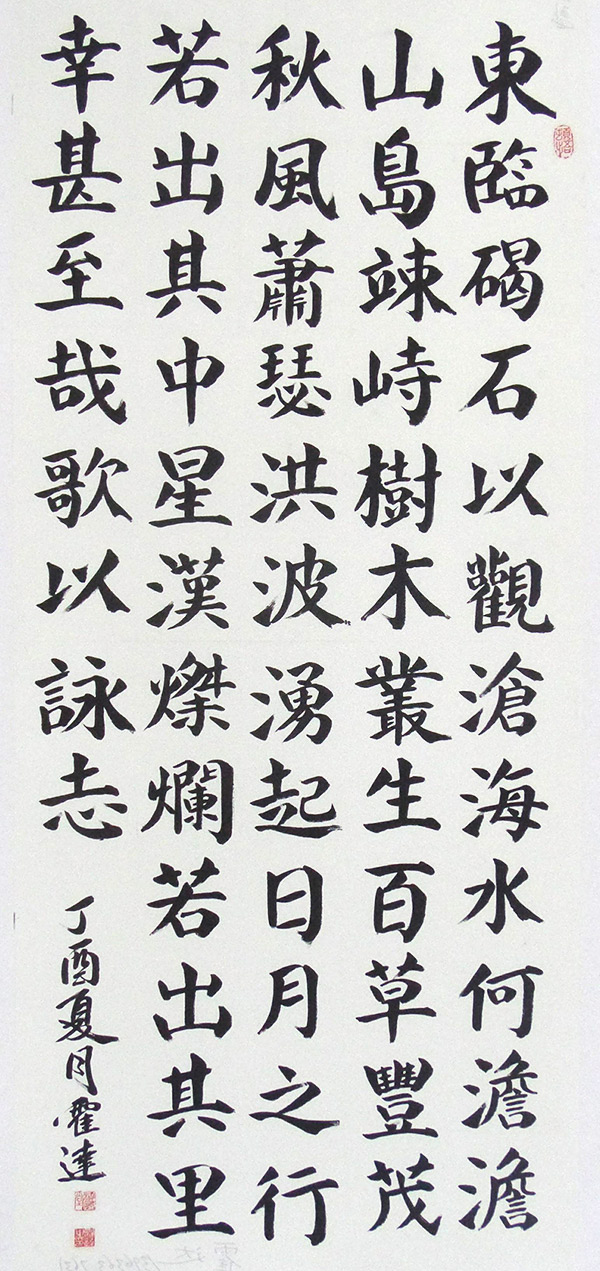 東臨碣石以觀滄海水何澹澹
山島竦峙樹木叢生百草豐茂
秋風蕭瑟洪波湧起日月之行
若出其中星漢燦爛若出其里
幸甚至哉歌以詠志
丁酉夏月霍達